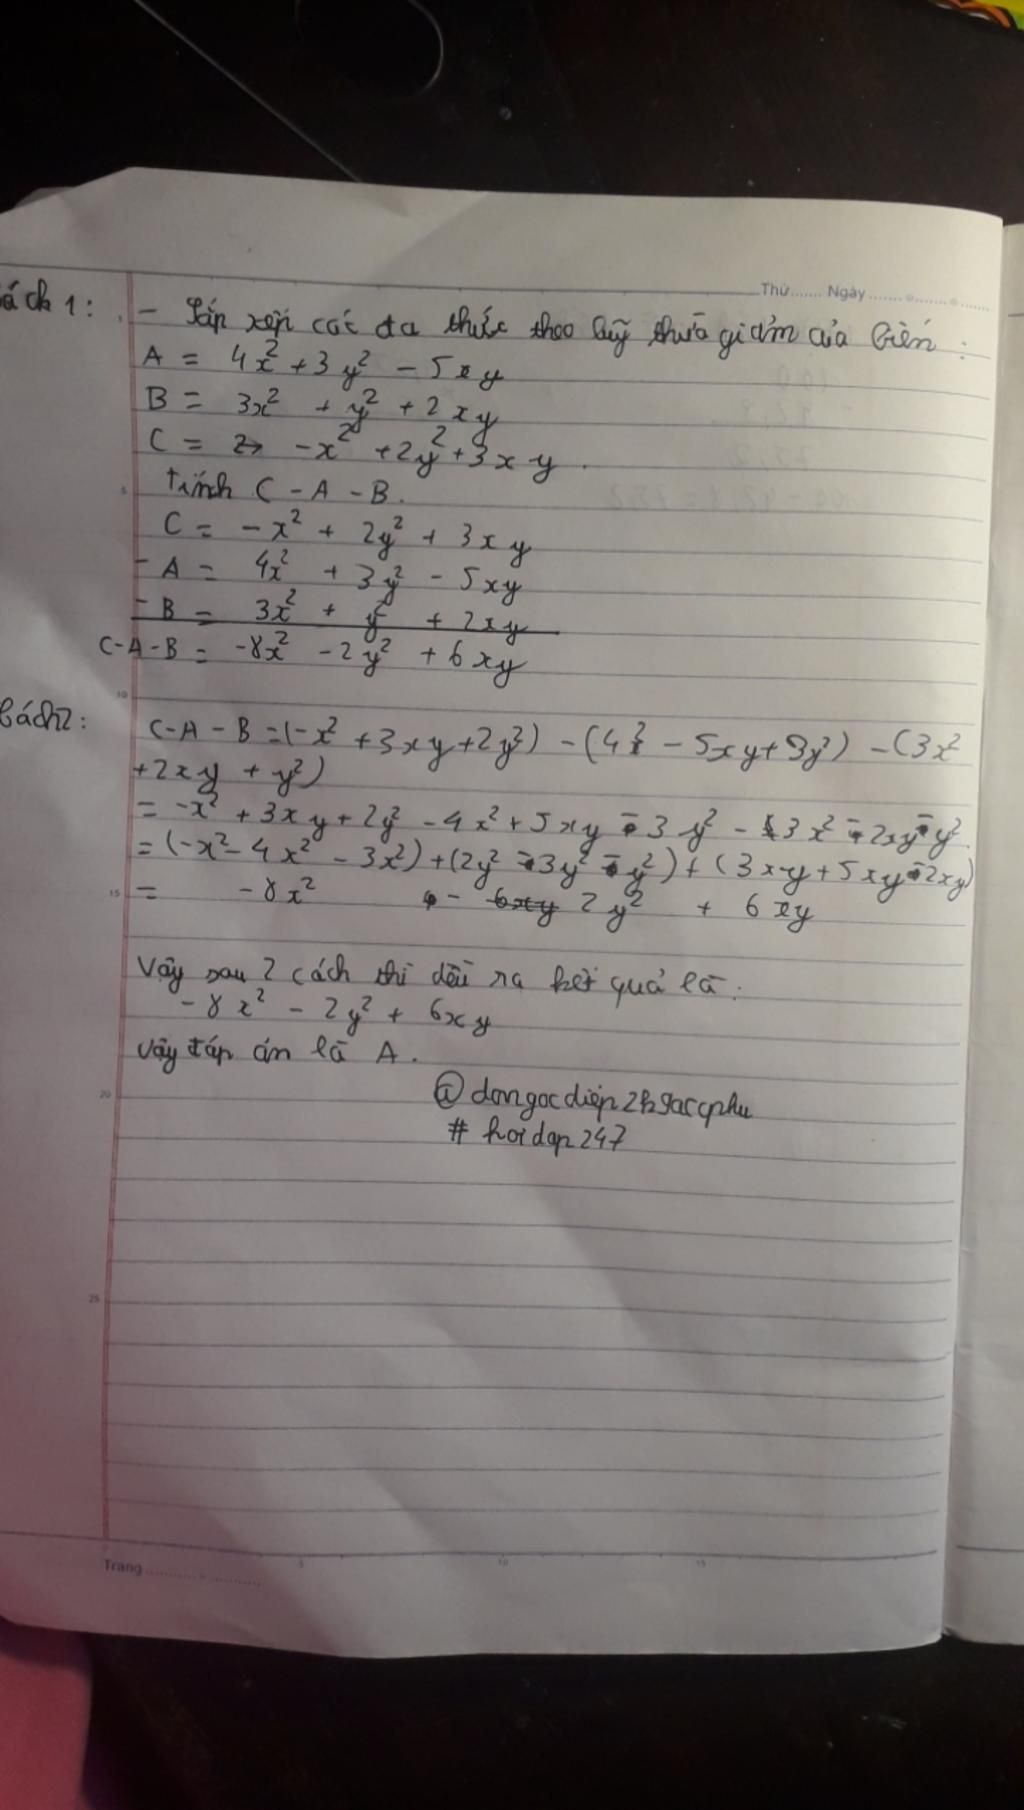 Thứ...... Ngày ....... o ....... o .......
ách 1: - Sắp xếp các đa thức theo luỹ thừa giảm của biến :
A = 4x² + 3y² - 5xy
B = 3x² + y² + 2xy
C = -x² + 2y² + 3xy .
tính C - A - B.
C = -x² + 2y² + 3xy
- A = 4x² + 3y² - 5xy
- B = 3x² + y² + 2xy
C-A-B = -8x² - 2y² + 6xy
Cách2: C-A-B = (-x² + 3xy + 2y²) - (4x² - 5xy + 3y²) - (3x²
+ 2xy + y²)
= -x² + 3xy + 2y² - 4x² + 5xy - 3y² - 3x² - 2xy - y².
= (-x² - 4x² - 3x²) + (2y² - 3y² - y²) + (3xy + 5xy - 2xy)
= -8x² - 2y² + 6xy
Vậy sau 2 cách thì đều ra kết quả là :
-8x² - 2y² + 6xy
Vậy đáp án là A .
# hoidap247
5
10
15
20
25
Trang .......... o ..........
5 10 15